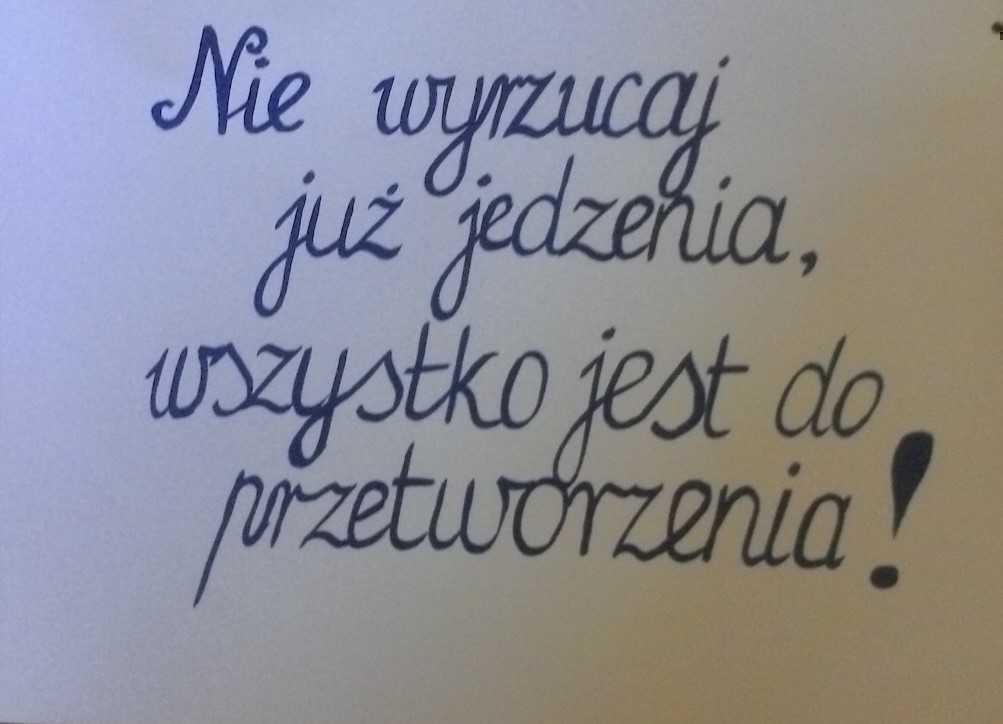 Nie wyrzucaj
już jedzenia,
wszystko jest do
przetworzenia!